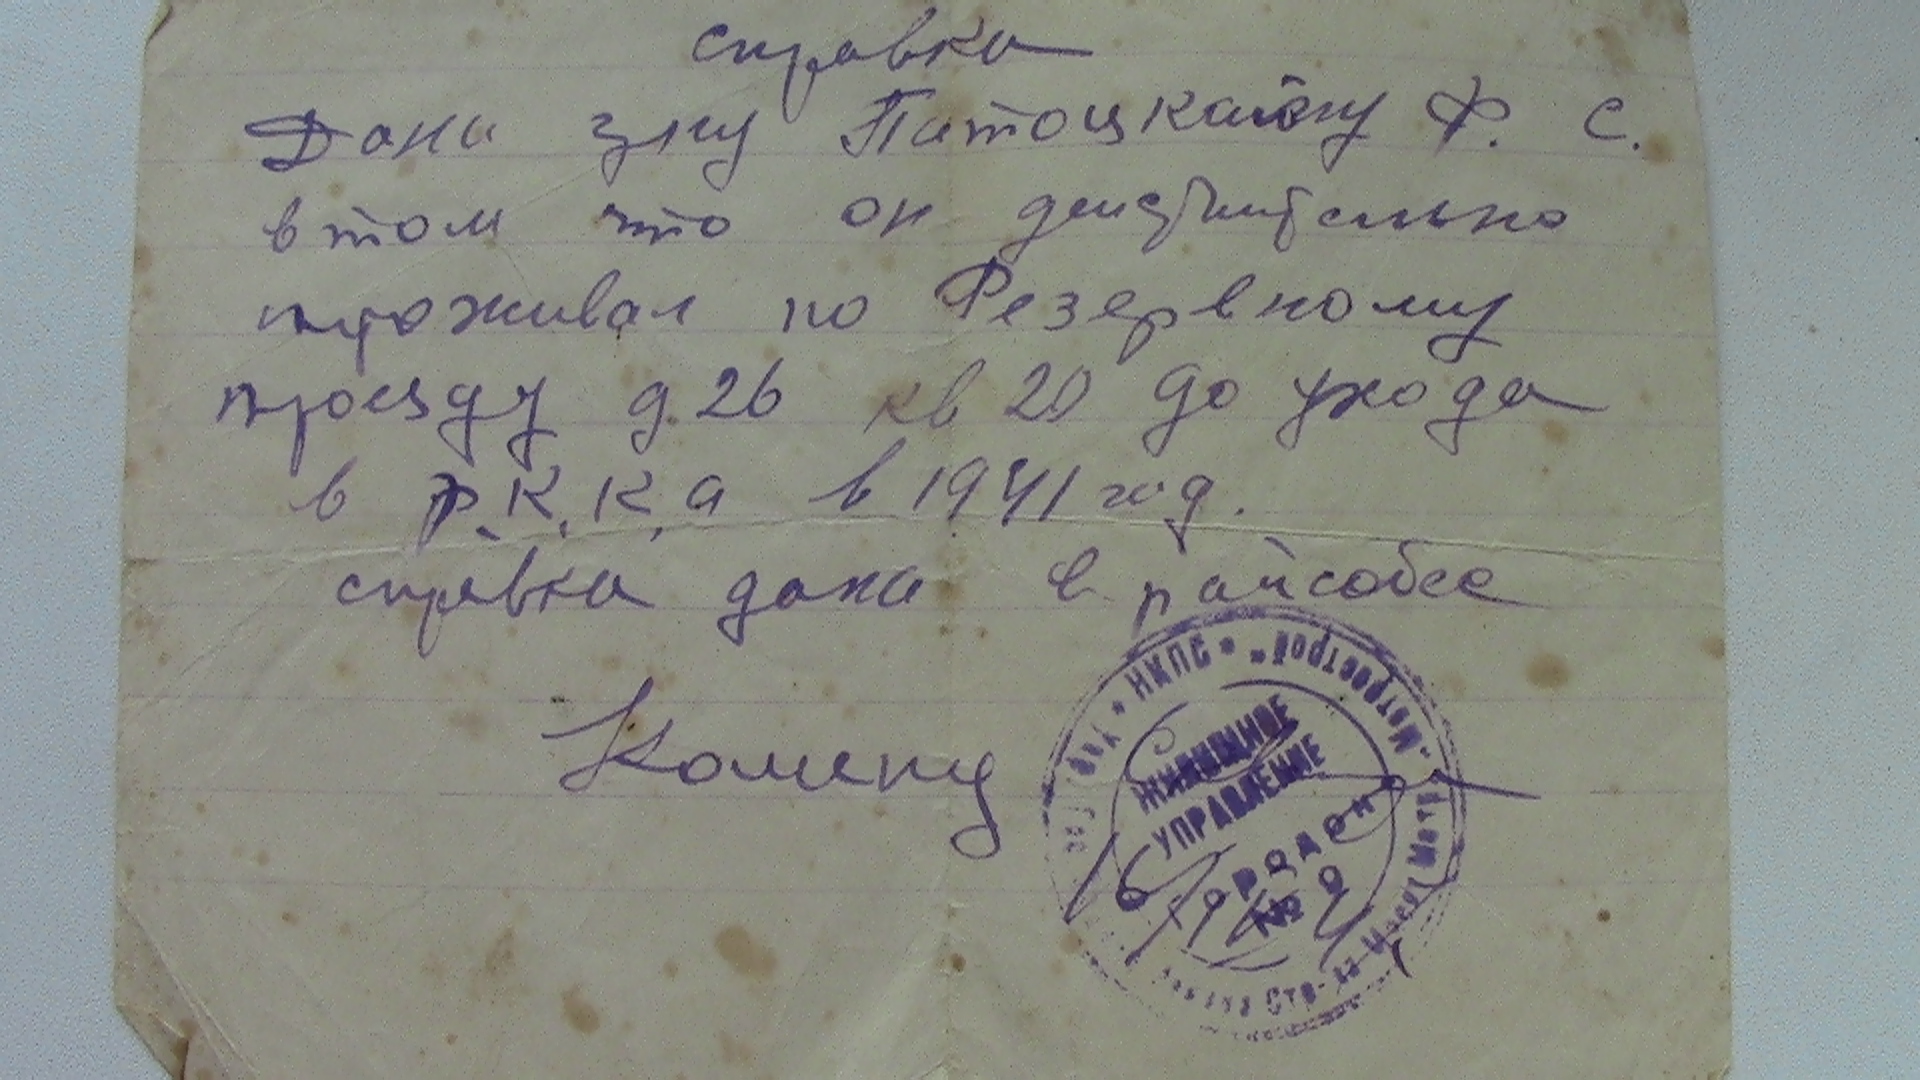 справка
Дана гр-ну Патоцкому Ф. С.
в том что он действительно
проживал по Резервному
проезду д. 26 кв 20 до ухода
в Р.К.К.А в 1941 год.
справка дана в райсобес
Коменд
НКПС * "Метрострой"
ЖИЛИЩНОЕ
УПРАВЛЕНИЕ
№ 9